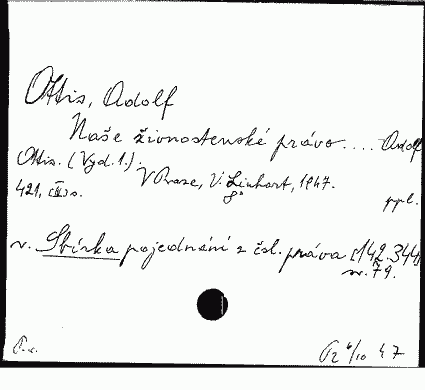 Ottis, Adolf
Naše živnostenské právo.... Adolf
Ottis. (Vyd. 1.).
V Praze, V. Linhart, 1947.
421, [III] s. 8° ppl.
v. Sbírka pojednání z čsl. práva [142.344
sv. 79.
47